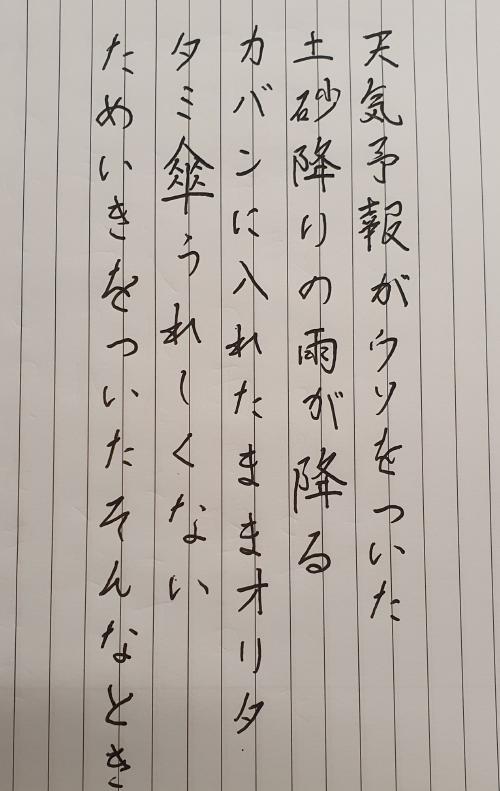 天気予報がウソをついた
土砂降りの雨が降る
カバンに入れたままオリタ
タミ傘うれしくない
ためいきをついたそんなとき